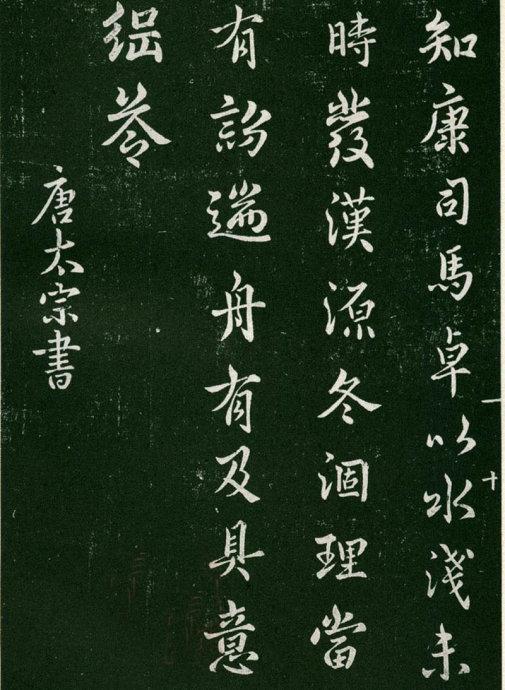 知康司馬卓以水淺未
時發漢源冬涸理當
有遄舟有及具意
苓
唐太宗書
十